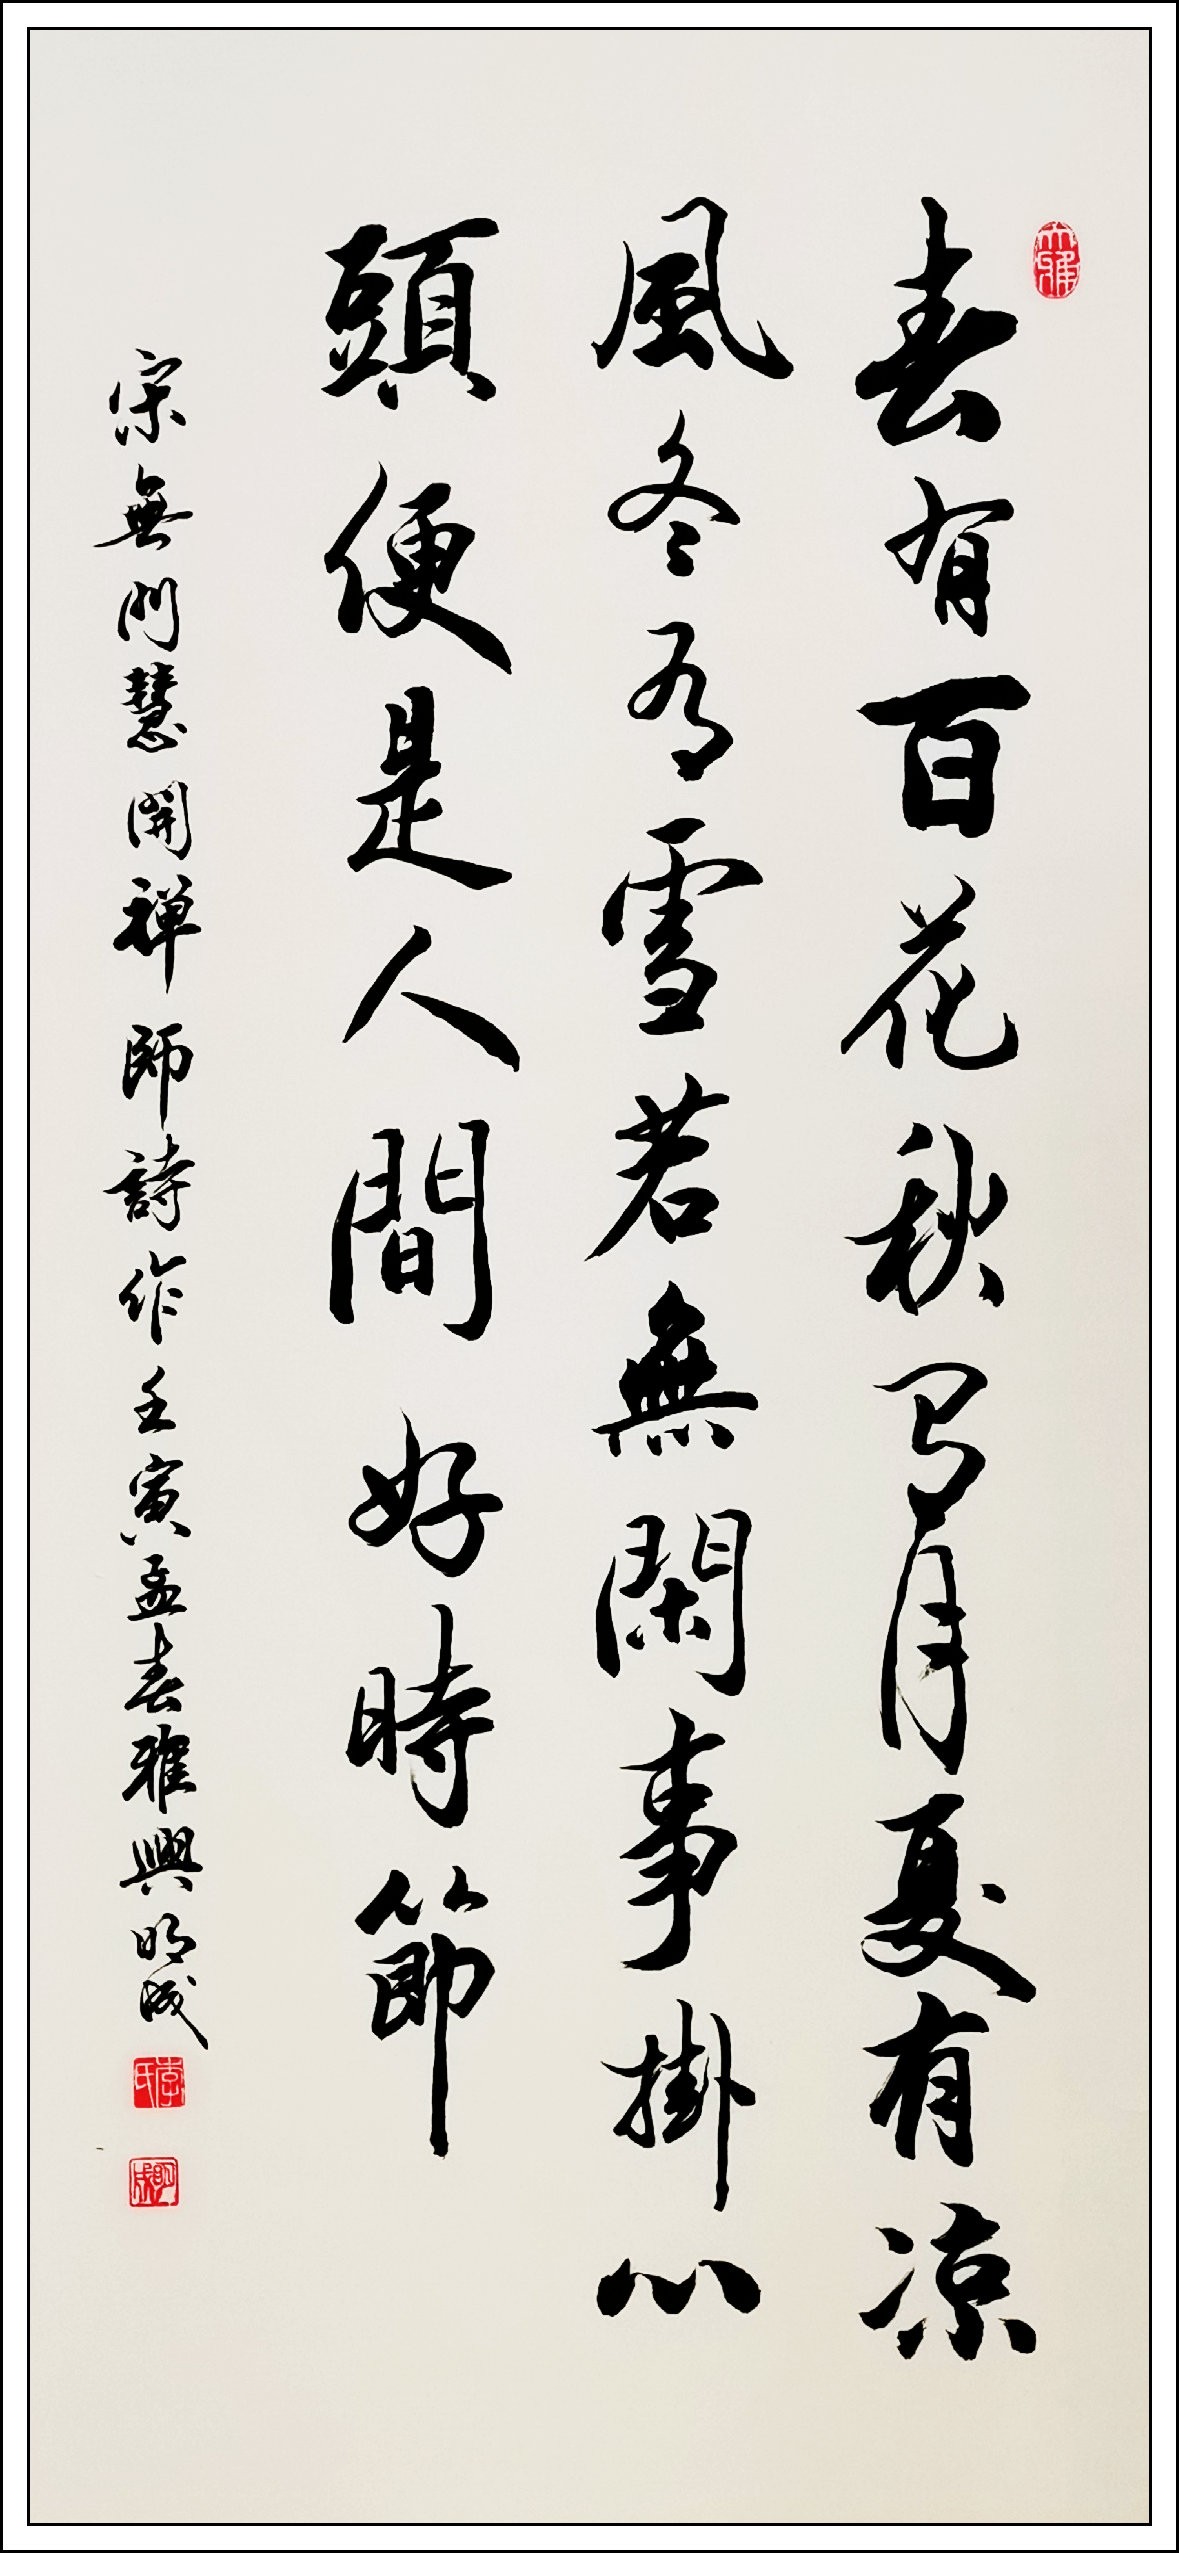 春有百花秋有月夏有凉
風冬有雪若無閑事掛心
頭便是人間好時節
宋無門慧開禅師詩作壬寅孟春雅興明成
李氏